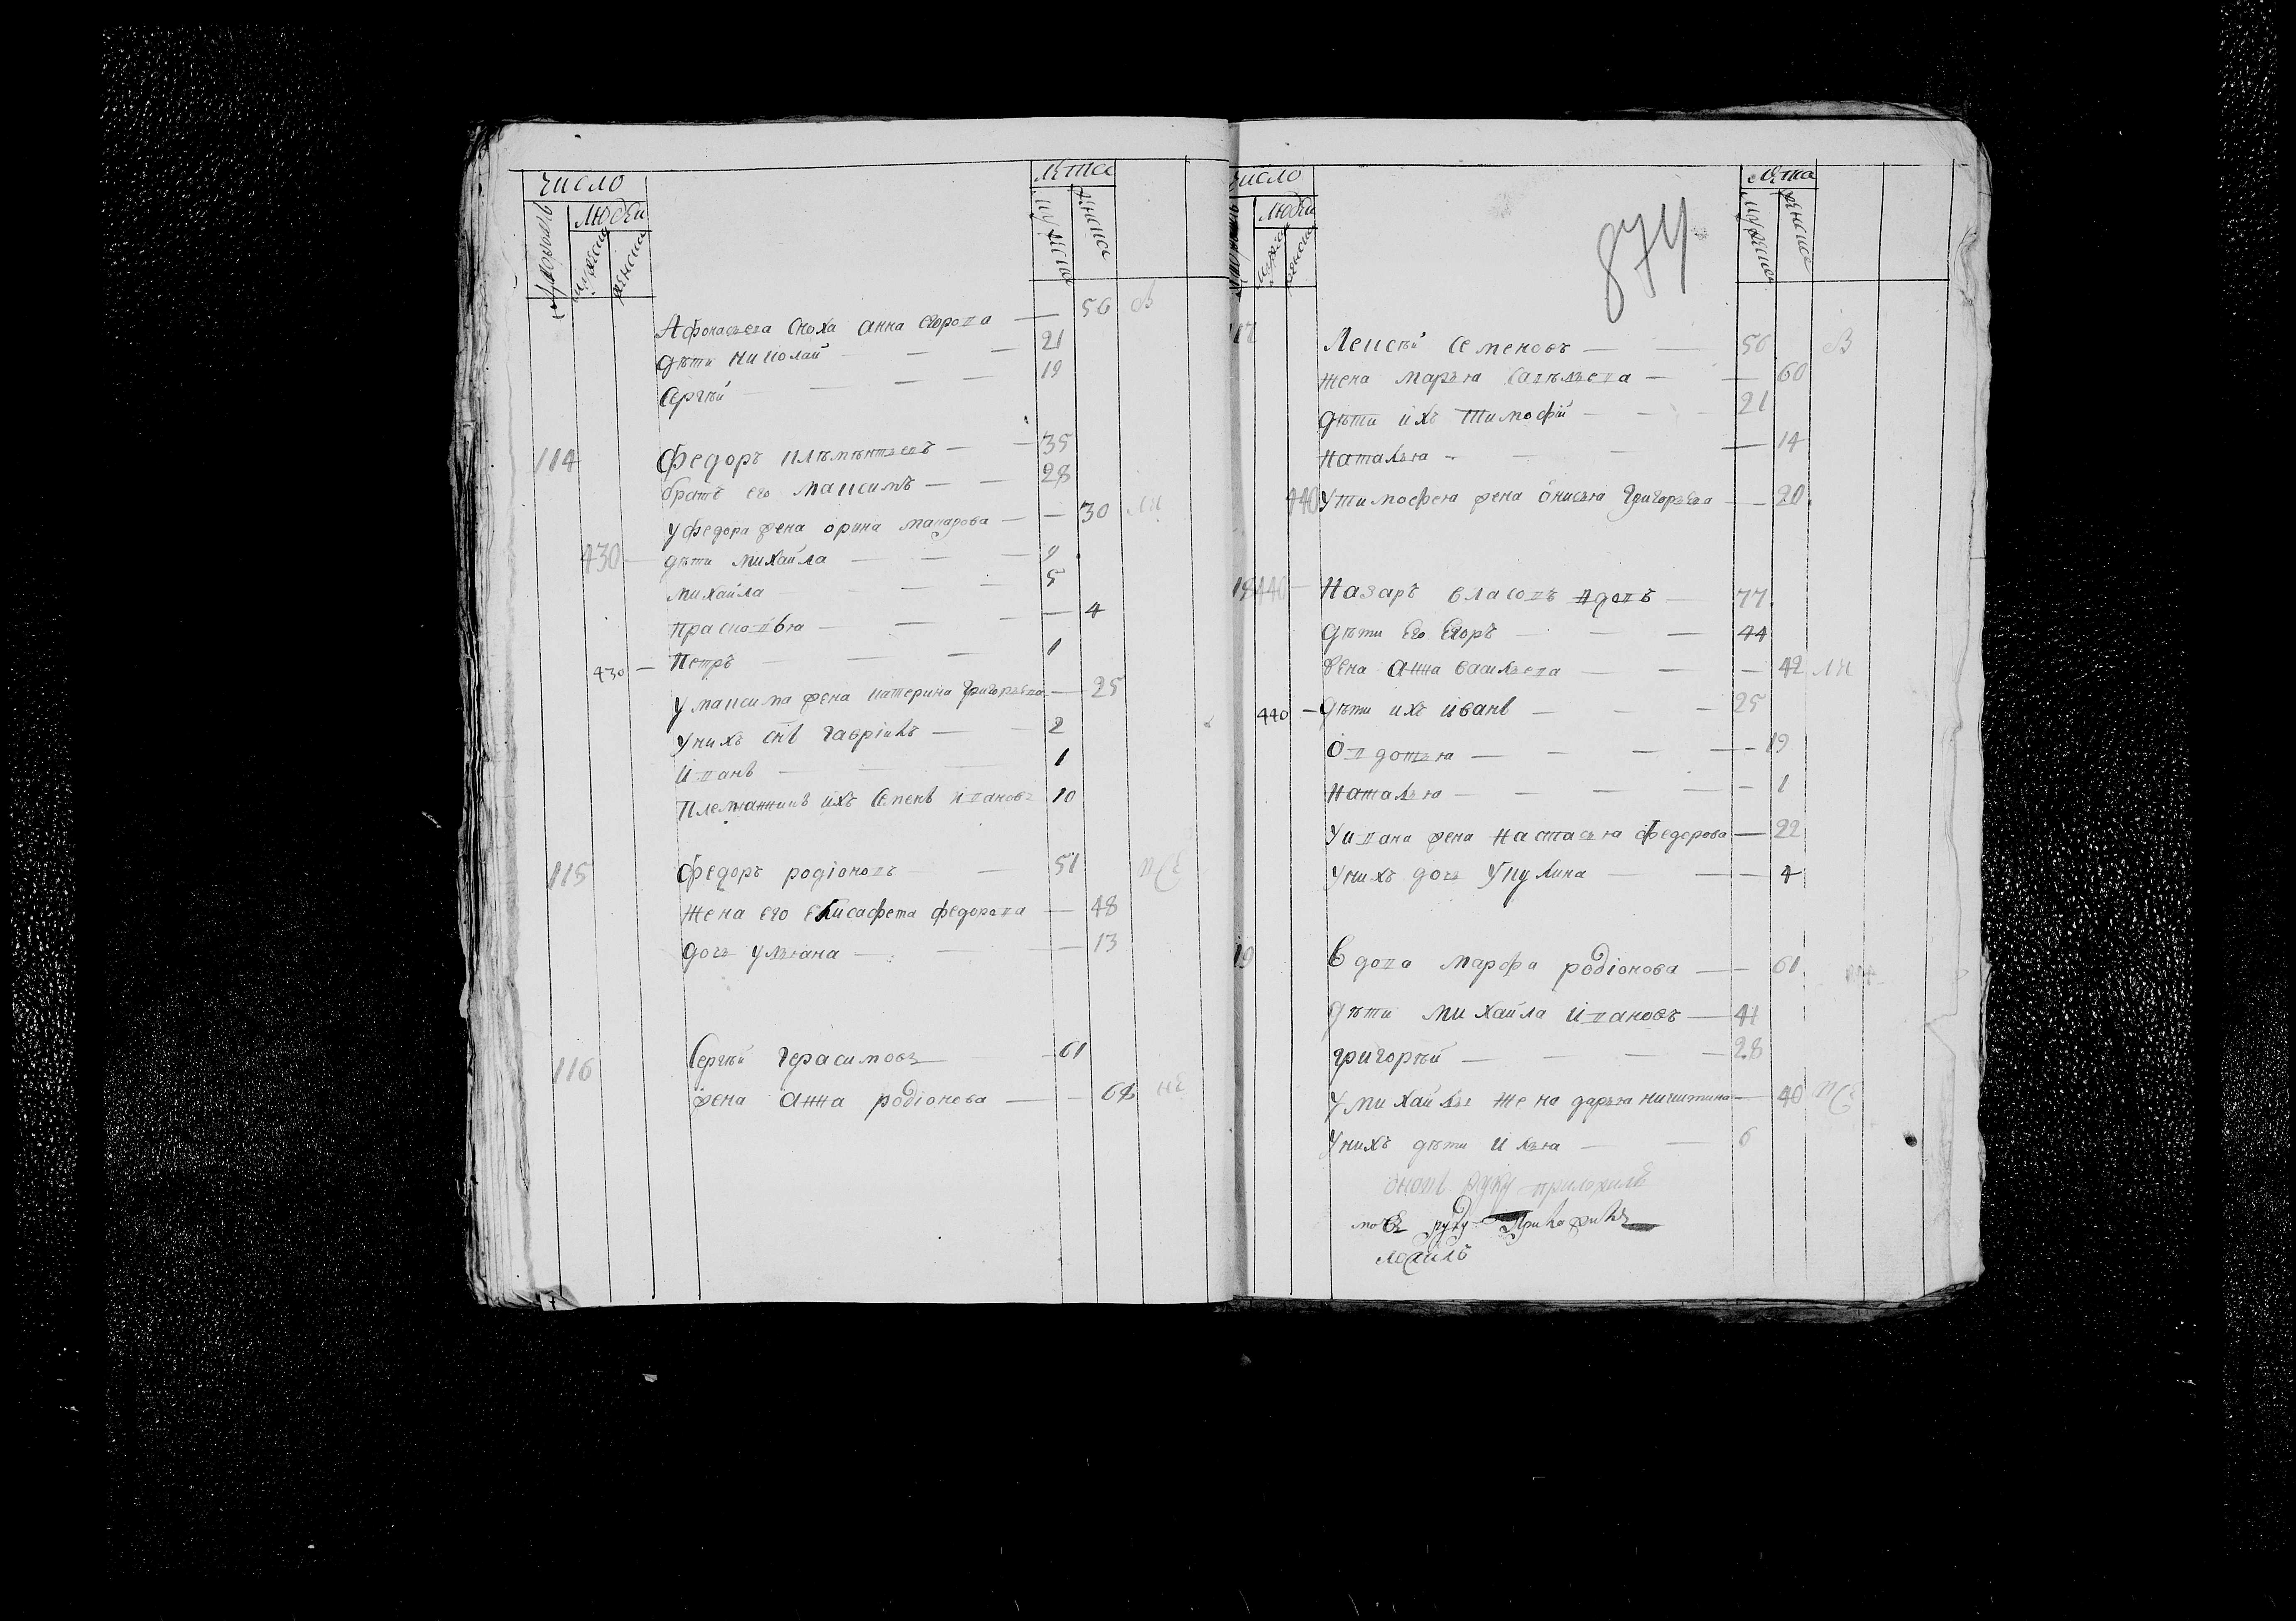 число лѣта
дворовъ людеи мужеска женска
мужеска женска
Афонасьева сноха анна егорова — 56 в
дѣти николай — — — 21
Сергѣй — — — 19
114 Федоръ клѣмѣнтьевъ — — 35
братъ его максимъ — — 28
у федора жена орина макарова — — 30 ли
430 — дѣти михайла — — — 9
михайла — — — 5
прасковья — — — — 4
430 — Петръ — — — 1
у максима жена катерина григорьева — 25
у нихъ снъ гаврилъ — — 2
иванъ — — 1
племянникъ ихъ семенъ ивановъ 10
115 федоръ родіоновъ — — 51
жена его елисафета федорова — 48
дочь ульяна — — — 13
116 Сергѣй герасимовъ — 61
жена анна родіонова — — 64 не
число лѣта
людеи мужеска женска
мужеска женска
874
17 Лексѣй семеновъ — — 56 в
жена марья савельева — — 60
дѣти ихъ тимофѣй — — — 21
наталья — — — — 14
440 у тимофея жена онисья григорьева — 20
18 440 — Назаръ власовъ вдовъ — 77
дѣти его егоръ — — — 44
жена анна васильева — — — 42 ли
440 — дѣти ихъ иванъ — — — 25
овдотья — — — — 19
наталья — — — — — 1
у ивана жена настасья федорова — 22
у нихъ дочь укулина — — — 4
19 вдова марфа родіонова — — 61
дѣти михайла ивановъ — 41
григорѣй — — — — 28
у михайлы жена дарья никитина — 40
у нихъ дѣти илья — — 6
руку приложилъ
руку приложилъ